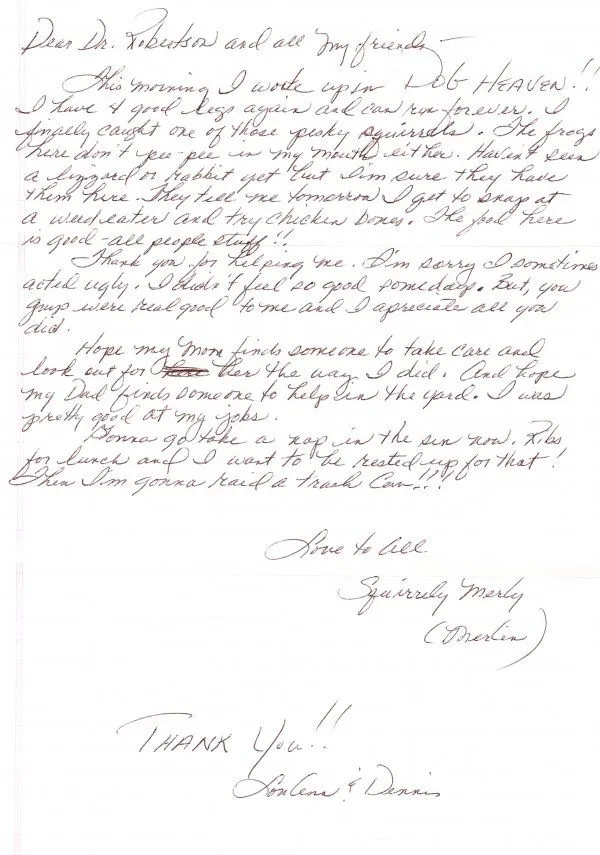 Dear Dr. Robertson and all my friends -
This morning I woke up in DOG HEAVEN!!
I have 4 good legs again and can run forever. I
finally caught one of those pesky squirrels. The frogs
here don't pee-pee in my mouth either. Haven't seen
a lizzard or rabbit yet but I'm sure they have
them here. They tell me tomorrow I get to snap at
a weedeater and try chicken bones. The food here
is good - all people stuff!!
Thank you for helping me. I'm sorry I sometimes
acted ugly. I didn't feel so good somedays. But, you
guys were real good to me and I apreciate all you
did.
Hope my Mom finds someone to take care and
look out for her the way I did. And hope
my Dad finds someone to help in the yard. I was
pretty good at my jobs.
Gonna go take a nap in the sun now. Ribs
for lunch and I want to be rested up for that!
Then I'm gonna raid a trash can!!!
Love to all
Squirrely Merly
(Merlin)
THANK YOU!!
LouAnn & Dennis